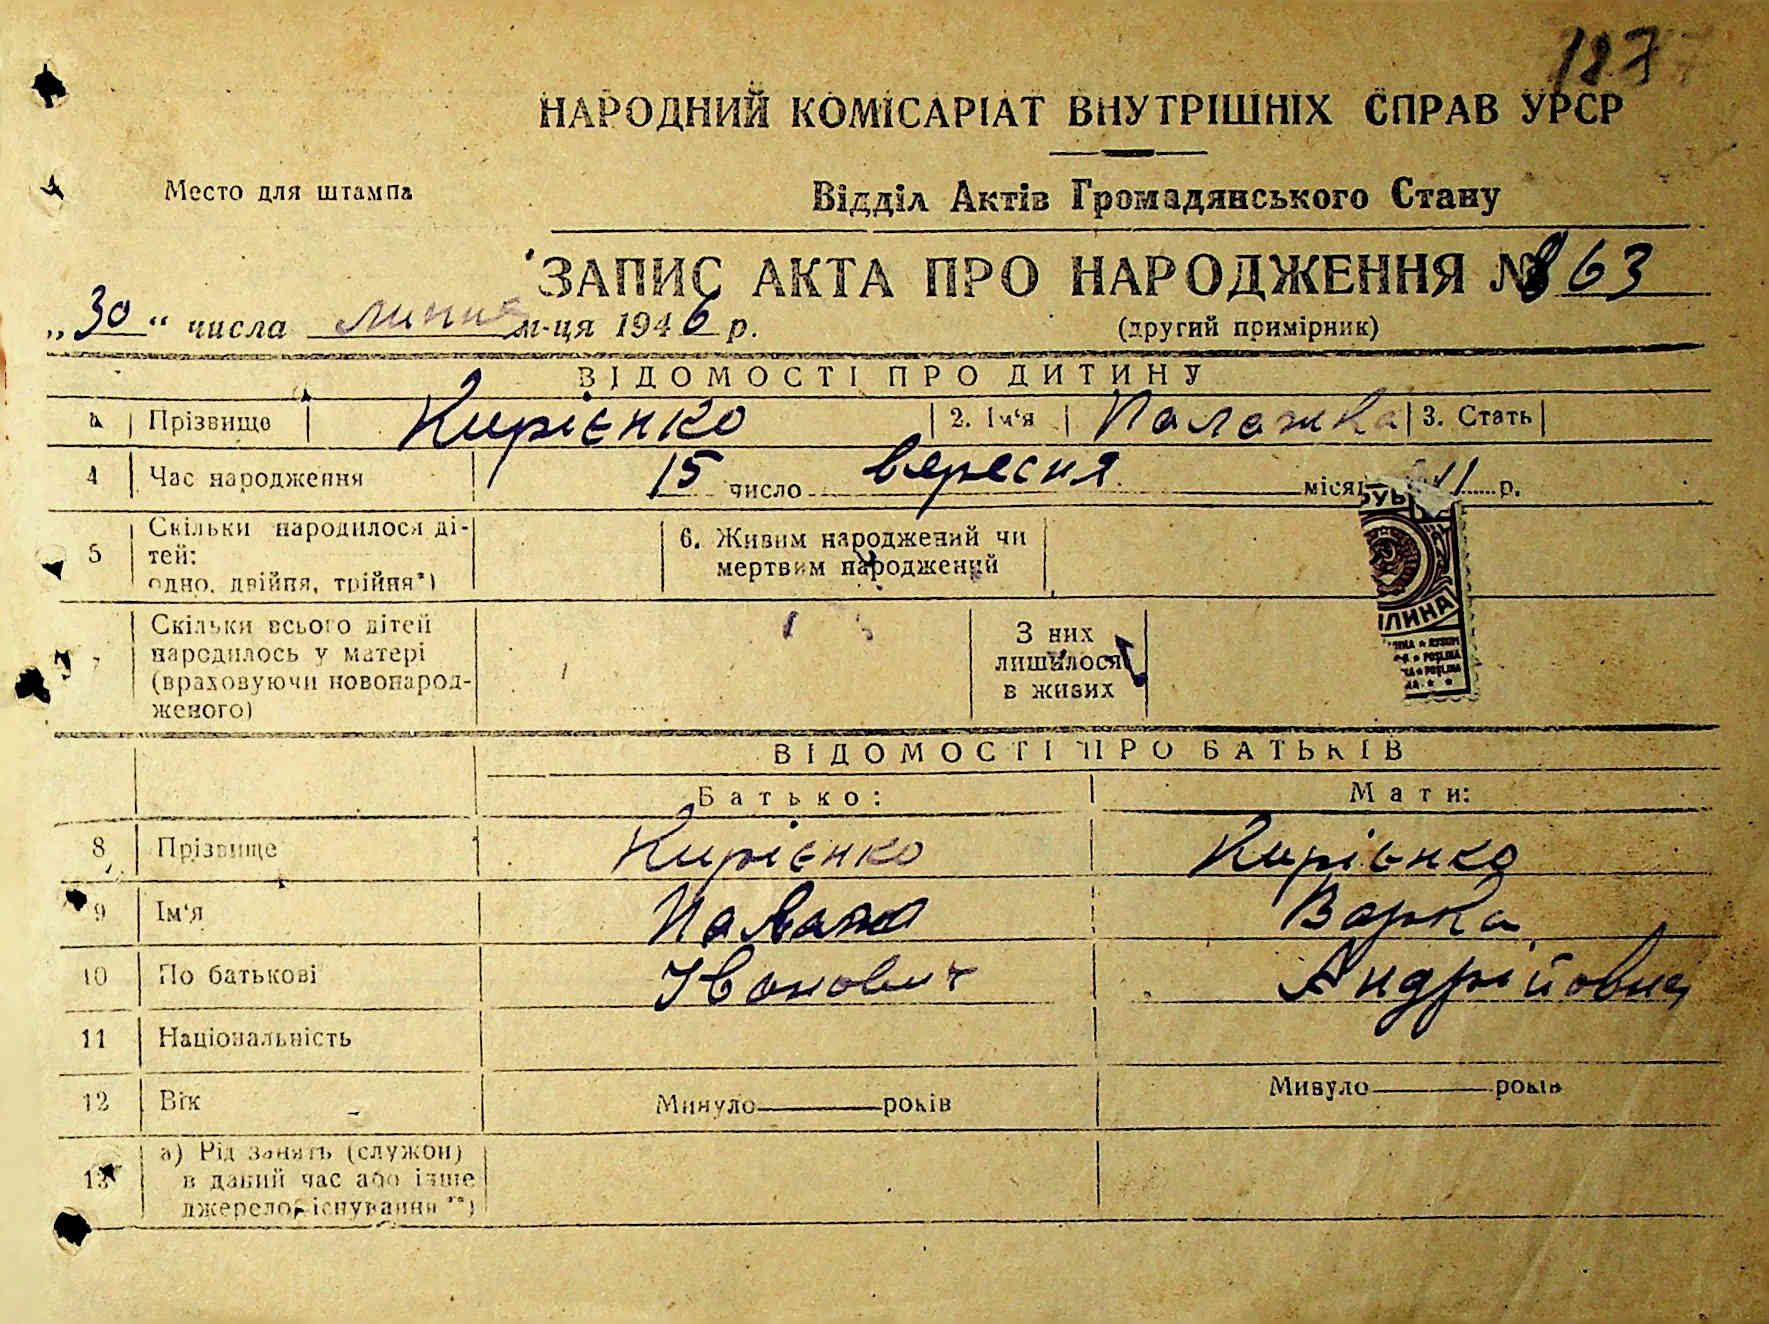 127
НАРОДНИЙ КОМІСАРІАТ ВНУТРІШНІХ СПРАВ УРСР
Место для штампа
Відділ Актів Громадянського Стану
ЗАПИС АКТА ПРО НАРОДЖЕННЯ № 863
„30“ числа липня м-ця 1946 р.
(другий примірник)
ВІДОМОСТІ ПРО ДИТИНУ
Прізвище Кирієнко 2. Ім‘я Палажка 3. Стать
4 Час народження 15 число вересня місяц 11 р.
5 Скільки народилося ді-
тей:
одно, двійня, трійня*)
6. Живим народжений чи
мертвим народжений
7 Скільки всього дітей
народилось у матері
(враховуючи новонарод-
женого)
З них
лишилося
в живих
ВІДОМОСТІ ПРО БАТЬКІВ
Батько: Мати:
8 Прізвище Кирієнко Кирієнко
9 Ім‘я Варка
10 По батькові Іванович Андрійовна
11 Національність
12 Вік Минуло ——— років Минуло ——— років
13 а) Рід занять (служби)
в даний час або інше
джерело існування **)